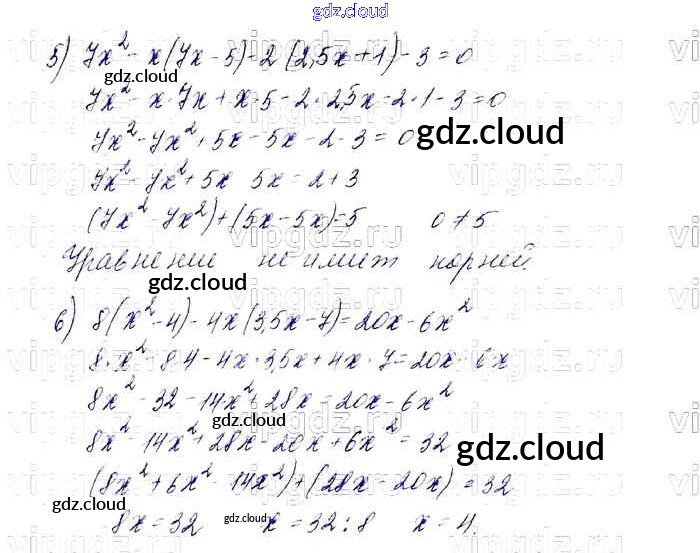 gdz.cloud
5) 7x² - x(7x - 5) - 2(2,5x + 1) - 3 = 0
gdz.cloud
7x² - x·7x + x·5 - 2·2,5x - 2·1 - 3 = 0
7x² - 7x² + 5x - 5x - 2 - 3 = 0 gdz.cloud
vipgdz.ru
7x² - 7x² + 5x 5x = 2 + 3
(7x² - 7x²) + (5x - 5x) = 5 0 ≠ 5
vipgdz.ru
Уравнение не имеет корней.
gdz.cloud
6) 8(x² - 4) - 4x(3,5x - 7) = 20x - 6x²
8·x² - 8·4 - 4x·3,5x + 4x·7 = 20x - 6x
vipgdz.ru
8x² - 32 - 14x² + 28x = 20x - 6x²
gdz.cloud
8x² - 14x² + 28x - 20x + 6x² = 32
gdz.cloud
(8x² + 6x² - 14x²) + (28x - 20x) = 32
gdz.cloud
8x = 32 gdz.cloud x = 32 : 8 x = 4.